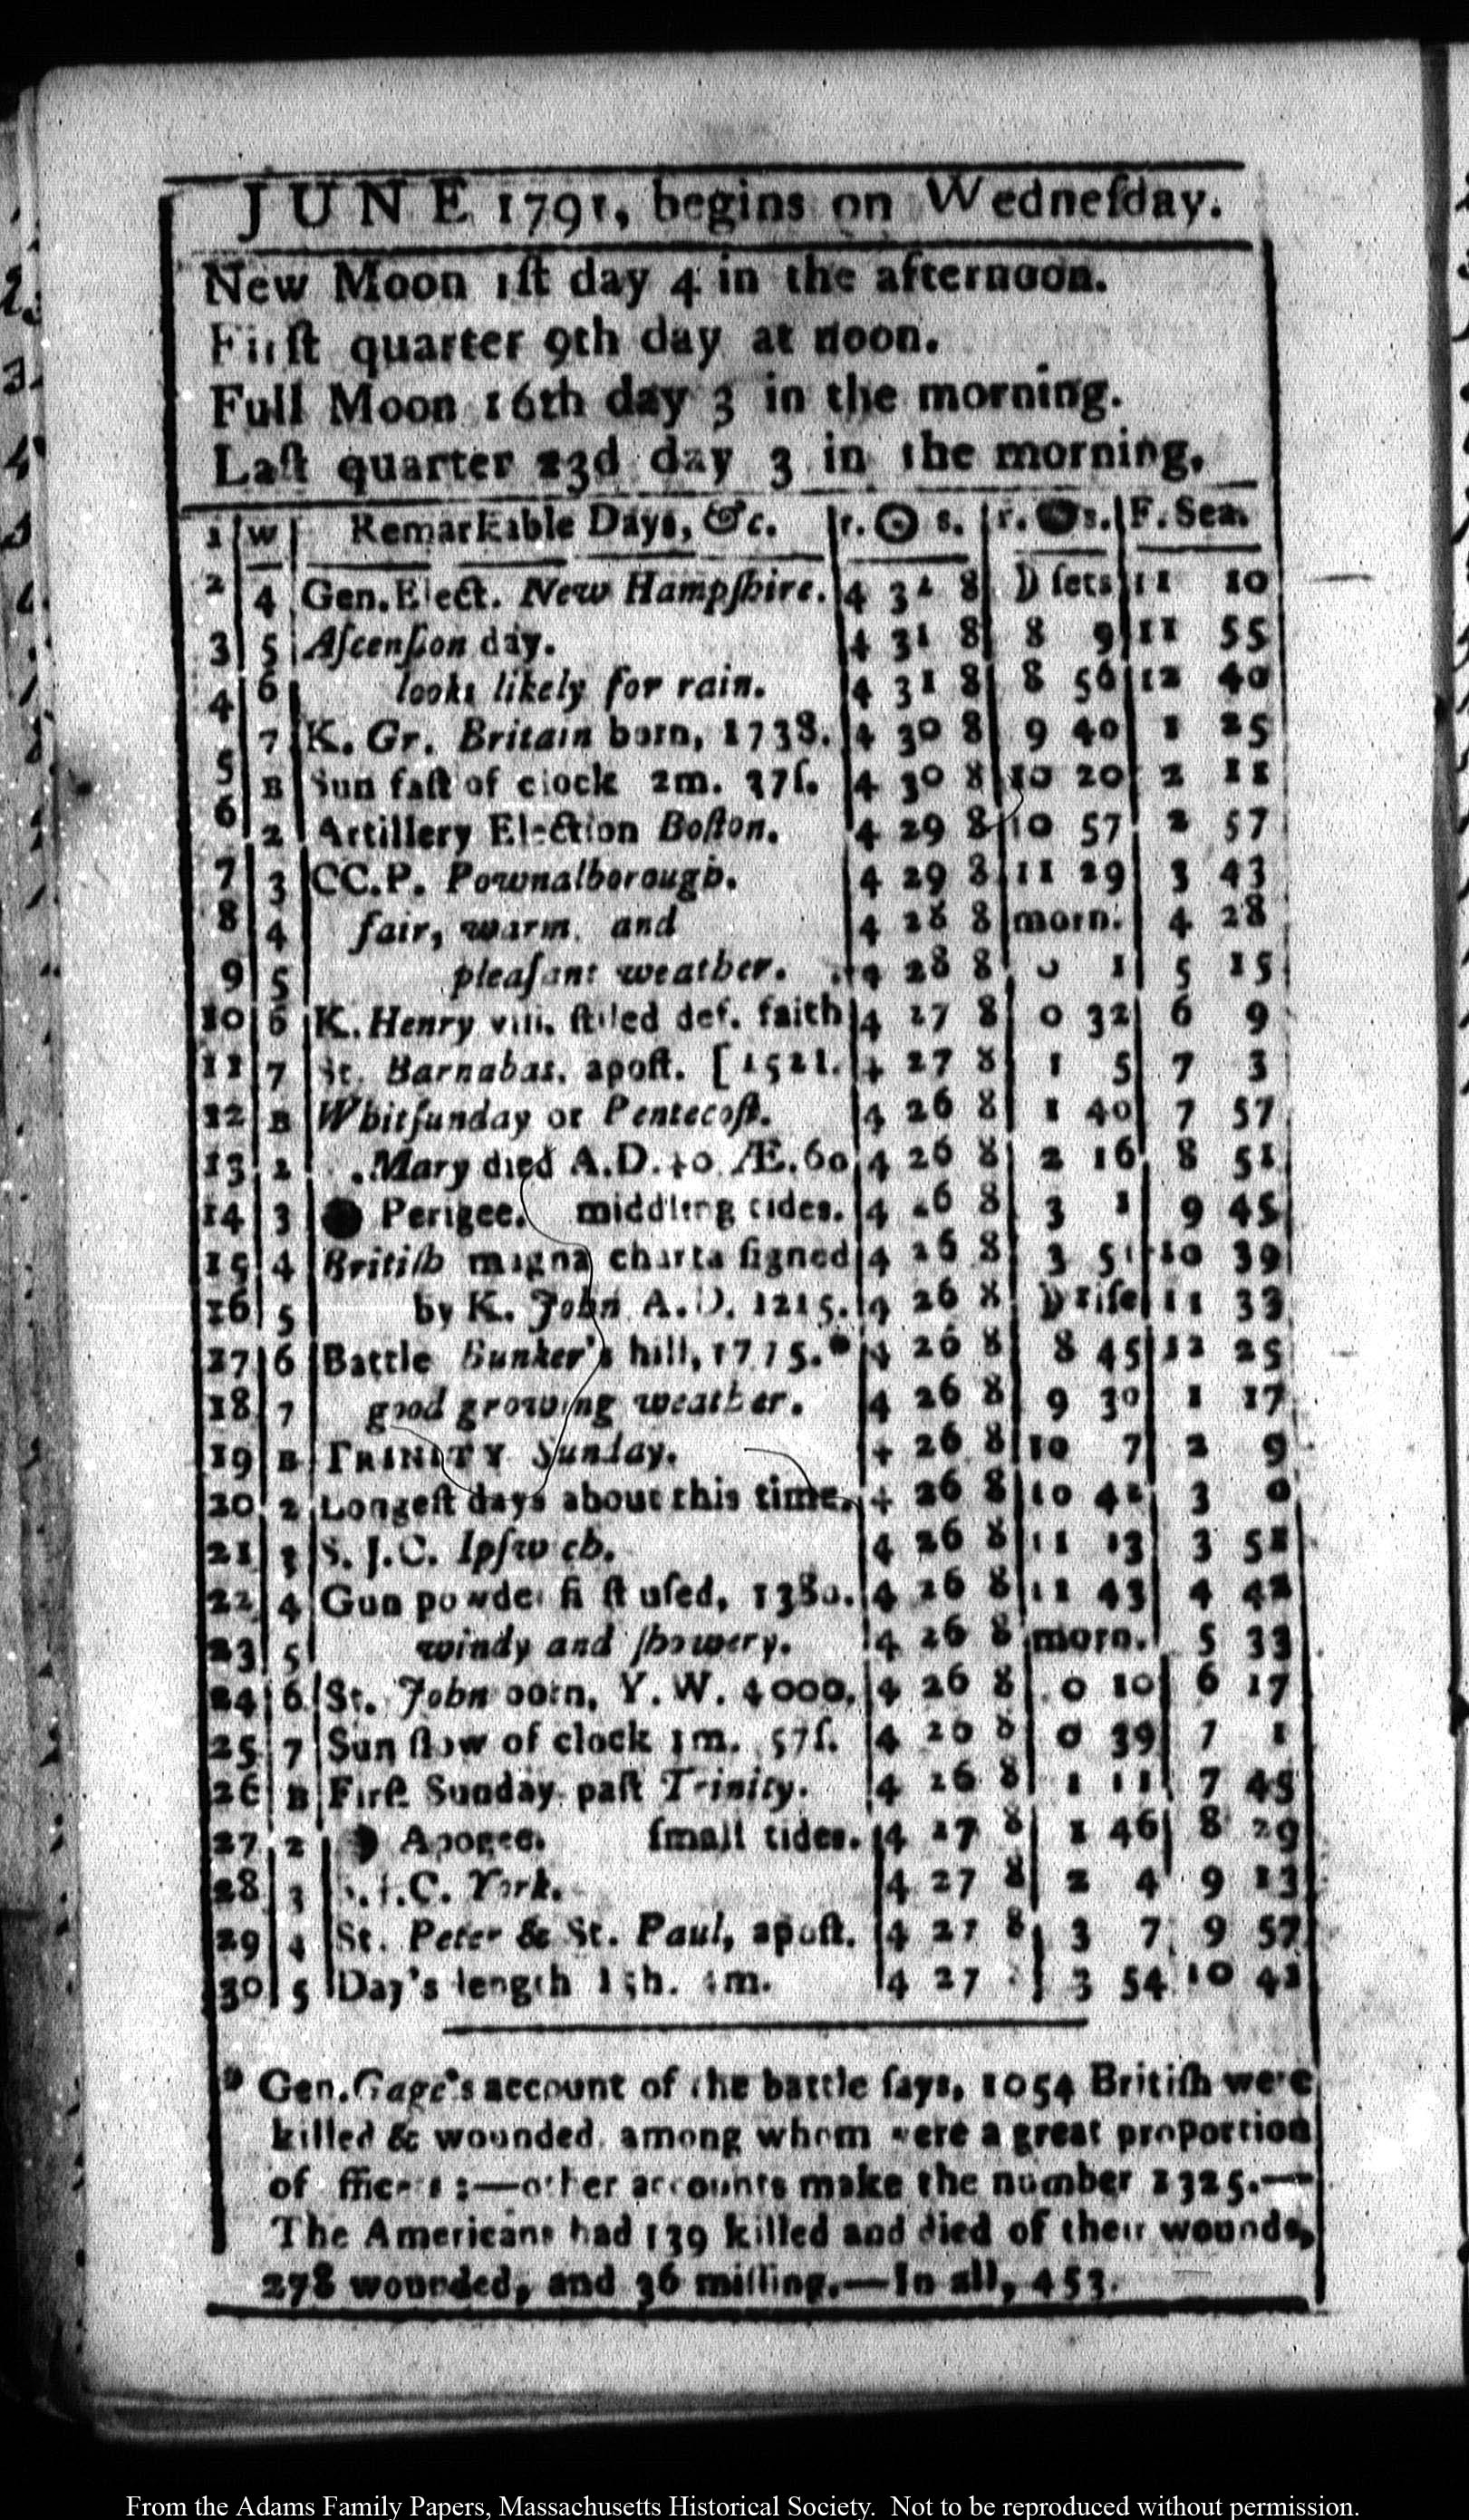 JUNE 1791, begins on Wedneſday.
New Moon 1ſt day 4 in the afternoon.
Firſt quarter 9th day at noon.
Full Moon 16th day 3 in the morning.
Laſt quarter 23d day 3 in the morning.
1 w Remarkable Days, &c. r. ☉ s. r. s. F. Sea.
2 4 Gen. Elect. New Hampſhire. 4 32 8 ☽ ſets 11 10
3 5 Aſcenſion day. 4 31 8 8 9 11 55
4 6 looks likely for rain. 4 31 8 8 56 12 40
7 K. Gr. Britain born, 1738. 4 30 8 9 40 1 25
5 B Sun faſt of clock 2m. 37ſ. 4 30 8 10 20 2 11
6 2 Artillery Election Boſton. 4 29 8 10 57 2 57
7 3 CC.P. Pownalborough. 4 29 8 11 29 3 43
8 4 fair, warm, and 4 28 8 morn. 4 28
9 5 pleaſant weather. 4 28 8 0 1 5 15
10 6 K. Henry viii. ſtiled def. faith 4 27 8 0 32 6 9
11 7 St. Barnabas, apoſt. [1521. 4 27 8 1 5 7 3
12 B Whitſunday or Pentecoſt. 4 26 8 1 40 7 57
13 2 Mary died A.D. 40 Æ. 60 4 26 8 2 16 8 51
14 3 ● Perigee. middling tides. 4 26 8 3 1 9 45
15 4 Britiſh magna charta ſigned 4 26 8 3 51 10 39
16 5 by K. John A.D. 1215. 4 26 8 ☽ riſe 11 33
17 6 Battle Bunker's hill, 1775.* 4 26 8 8 45 12 25
18 7 good growing weather. 4 26 8 9 30 1 17
19 B TRINITY Sunday. 4 26 8 10 7 2 9
20 2 Longeſt days about this time. 4 26 8 10 42 3 0
21 3 S. J.C. Ipſwich. 4 26 8 11 13 3 51
22 4 Gun powder firſt uſed, 1380. 4 26 8 11 43 4 42
23 5 windy and ſhowery. 4 26 8 morn. 5 33
24 6 St. John born, Y. W. 4000. 4 26 8 0 10 6 17
25 7 Sun ſlow of clock 1m. 57ſ. 4 26 8 0 39 7 1
26 B Firſt Sunday paſt Trinity. 4 26 8 1 11 7 45
27 2 Apogee. ſmall tides. 4 27 8 1 46 8 29
28 3 S.J.C. York. 4 27 8 2 4 9 13
29 4 St. Peter & St. Paul, apoſt. 4 27 8 3 7 9 57
30 5 Day's length 15h. 4 27 3 54 10 42
* Gen. Gage's account of the battle ſays, 1054 Britiſh were
killed & wounded, among whom were a great proportion
of officers :—other accounts make the number 1325.—
The Americans had 139 killed and died of their wounds,
278 wounded, and 36 miſſing.—In all, 453.
From the Adams Family Papers, Massachusetts Historical Society. Not to be reproduced without permission.